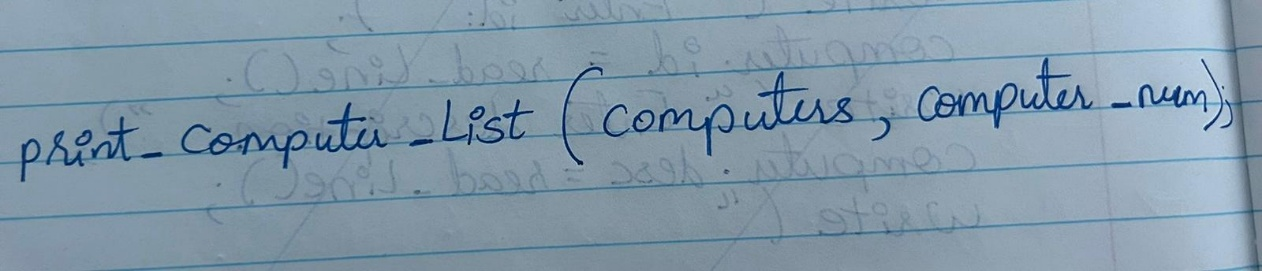 print_computer_List (computers, computer_num);